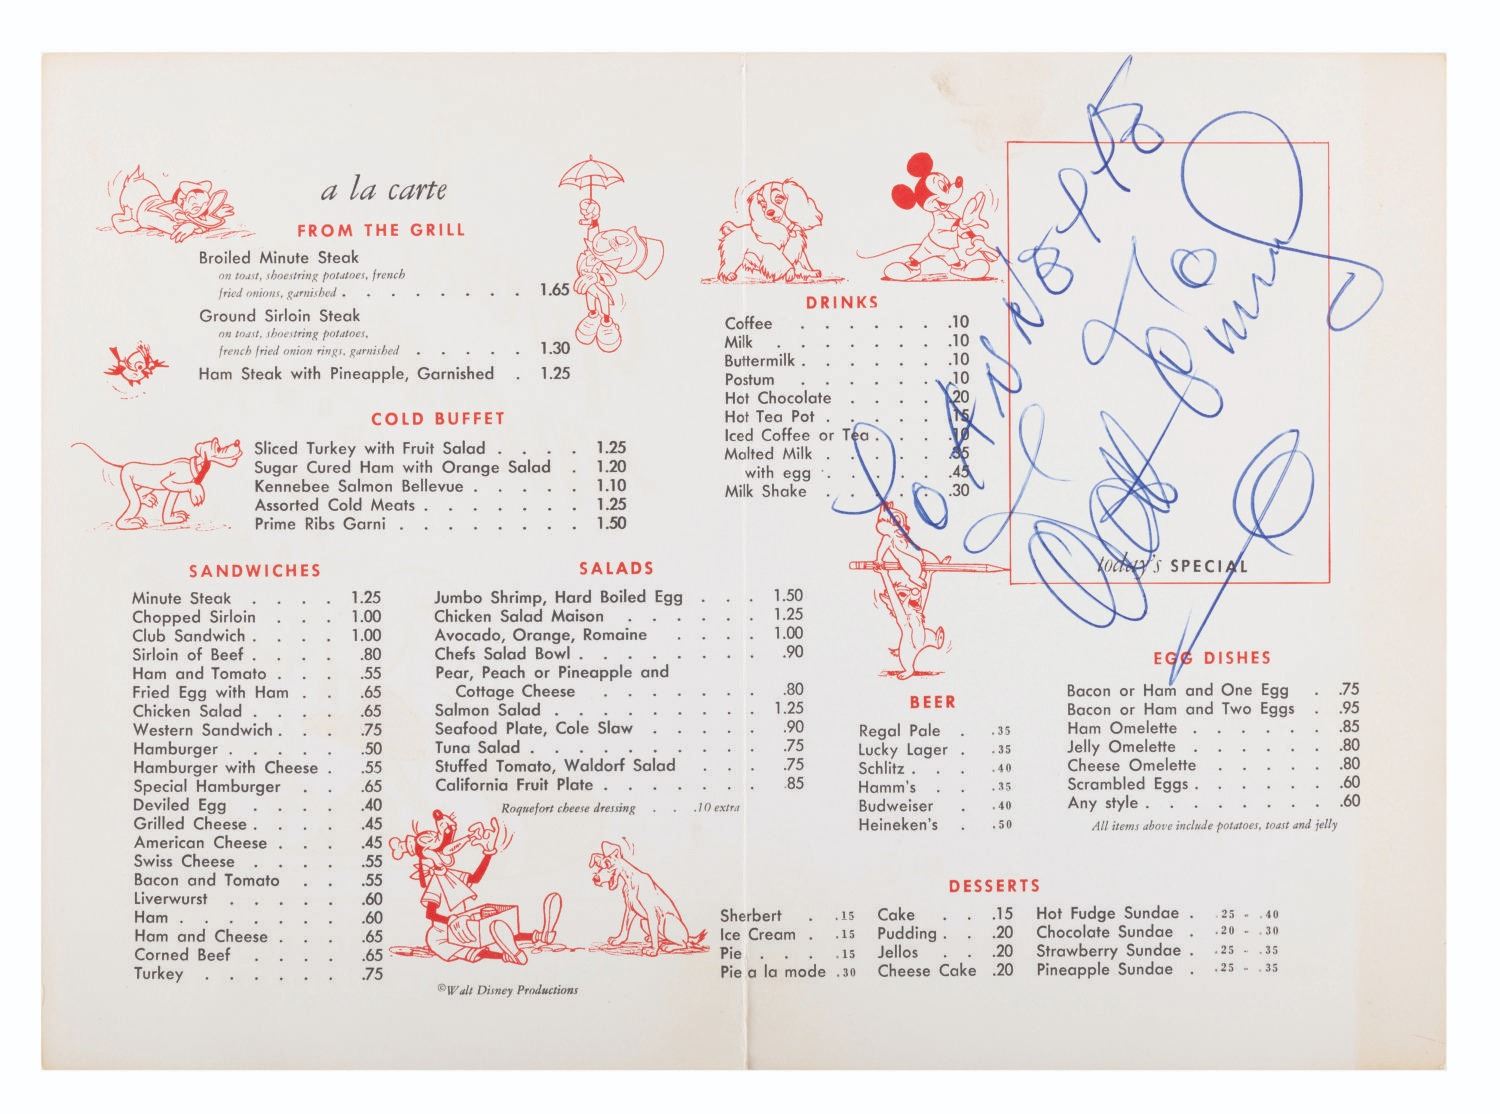 a la carte
FROM THE GRILL
Broiled Minute Steak
on toast, shoestring potatoes, french
fried onions, garnished . . . . . . . . 1.65
Ground Sirloin Steak
on toast, shoestring potatoes,
french fried onion rings, garnished . . . . . 1.30
Ham Steak with Pineapple, Garnished . 1.25
COLD BUFFET
Sliced Turkey with Fruit Salad . . . . 1.25
Sugar Cured Ham with Orange Salad . 1.20
Kennebee Salmon Bellevue . . . . . 1.10
Assorted Cold Meats . . . . . . . 1.25
Prime Ribs Garni . . . . . . . . 1.50
SANDWICHES
Minute Steak . . . . 1.25
Chopped Sirloin . . . 1.00
Club Sandwich . . . . 1.00
Sirloin of Beef . . . . .80
Ham and Tomato . . . .55
Fried Egg with Ham . . .65
Chicken Salad . . . . .65
Western Sandwich . . . .75
Hamburger . . . . . .50
Hamburger with Cheese . .55
Special Hamburger . . .65
Deviled Egg . . . . .40
Grilled Cheese . . . . .45
American Cheese . . . .45
Swiss Cheese . . . . .55
Bacon and Tomato . . .55
Liverwurst . . . . . .60
Ham . . . . . . . .60
Ham and Cheese . . . .65
Corned Beef . . . . .65
Turkey . . . . . . .75
SALADS
Jumbo Shrimp, Hard Boiled Egg . . . 1.50
Chicken Salad Maison . . . . . . 1.25
Avocado, Orange, Romaine . . . . 1.00
Chefs Salad Bowl . . . . . . . . .90
Pear, Peach or Pineapple and
Cottage Cheese . . . . . . . .80
Salmon Salad . . . . . . . . . 1.25
Seafood Plate, Cole Slaw . . . . . .90
Tuna Salad . . . . . . . . . . .75
Stuffed Tomato, Waldorf Salad . . . .75
California Fruit Plate . . . . . . . .85
Roquefort cheese dressing . . .10 extra
©Walt Disney Productions
DRINKS
Coffee . . . . . . .10
Milk . . . . . . . .10
Buttermilk . . . . . . .10
Postum . . . . . . .10
Hot Chocolate . . . . .20
Hot Tea Pot . . . . . .15
Iced Coffee or Tea . . . .10
Malted Milk . . . . . .35
with egg . . . . . .45
Milk Shake . . . . . .30
today's SPECIAL
BEER
Regal Pale . .35
Lucky Lager . .35
Schlitz . . . .40
Hamm's . . .35
Budweiser . .40
Heineken's . .50
EGG DISHES
Bacon or Ham and One Egg . .75
Bacon or Ham and Two Eggs . .95
Ham Omelette . . . . . . .85
Jelly Omelette . . . . . . .80
Cheese Omelette . . . . . .80
Scrambled Eggs . . . . . . .60
Any style . . . . . . . . .60
All items above include potatoes, toast and jelly
DESSERTS
Sherbert . .15 Cake . . .15 Hot Fudge Sundae . .25 - .40
Ice Cream . .15 Pudding . . .20 Chocolate Sundae . .20 - .30
Pie . . . .15 Jellos . . .20 Strawberry Sundae . .25 - .35
Pie a la mode .30 Cheese Cake .20 Pineapple Sundae . .25 - .35